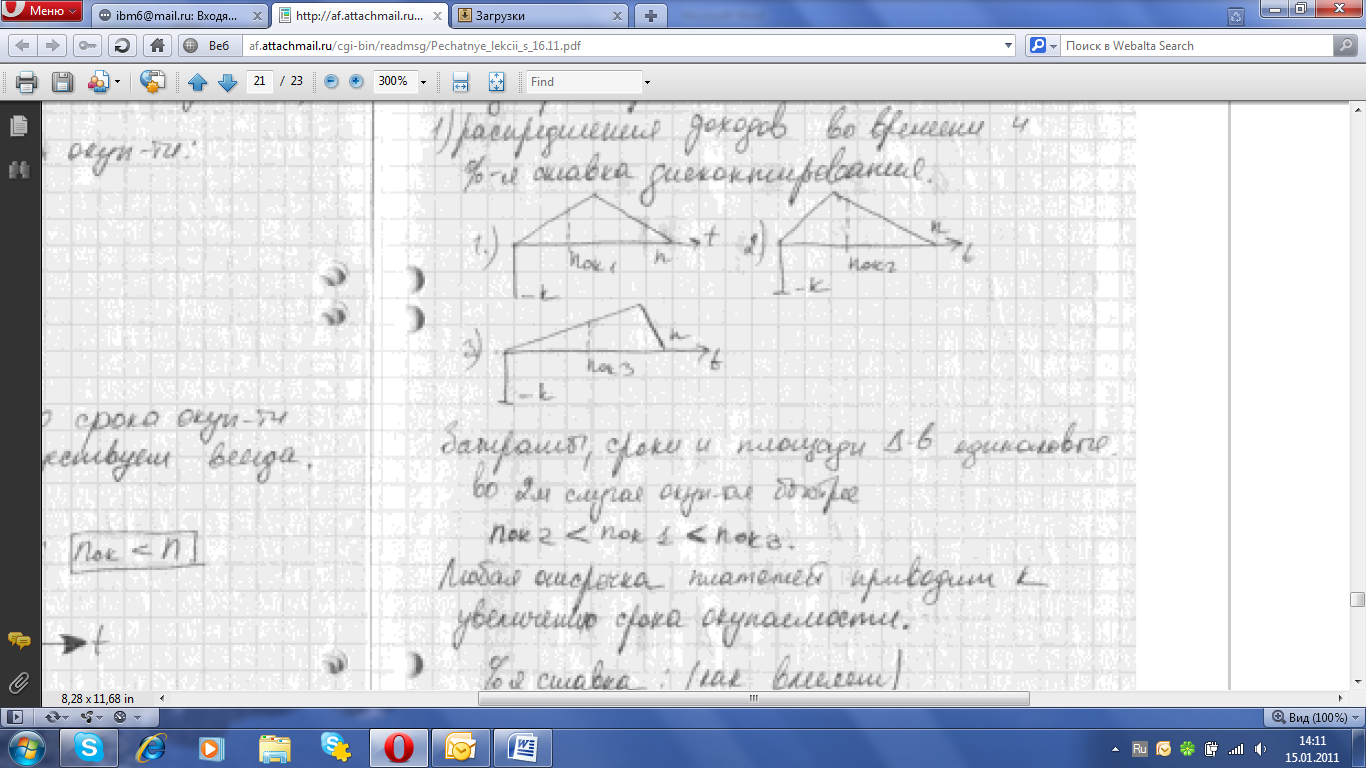 Меню
ibm6@mail.ru: Входя...
http://af.attachmail.ru...
Загрузки
Веб
af.attachmail.ru/cgi-bin/readmsg/Pechatnye_lekcii_s_16.11.pdf
Поиск в Webalta Search
21 / 23
300%
Find
окуп-ти:
срока окуп-ти
всегда.
nок < n
t
1) распределения доходов во времени и
%-я ставка дисконтирования.
1.)
nок1
n
t
-k
2)
nок2
n
t
-k
3)
nок3
n
t
-k
Затраты, сроки и площади Δ-в одинаковые.
во 2м случае окуп-ся быстрее
nок2 < nок1 < nок3.
Любая отсрочка платежей приводит к
увеличению срока окупаемости.
%-я ставка: (как влияет)
8,28 x 11,68 in
Вид (100%)
Ru
14:11
15.01.2011